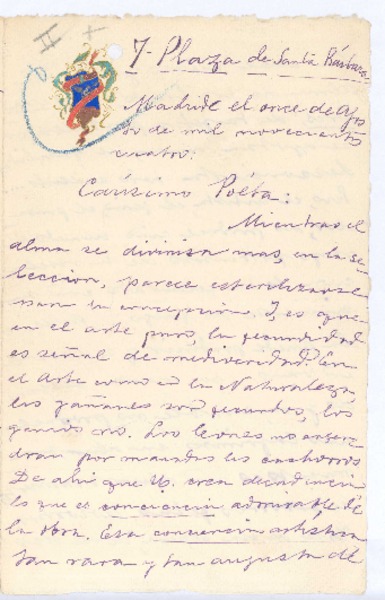 II +
7- Plaza de Santa Bárbara
Madrid el once de Agos
to de mil novecientos
cuatro:
Carísimo Poéta:
Mientras el
alma se diviniza mas, en la se-
leccion, parece esterilizarse
mas la concepcion. Y, es que
en el arte puro, la fecundidad
es señal de mediocridad. En
el Arte como en la Naturaleza,
los gañanes son fecundos, los
genios no. Los leones no engen
dran por manadas los cachorros
De ahi que U. crea decadencia
lo que es conciencia admirable de
la obra. Esa conciencia artistica
tan rara y tan augusta de